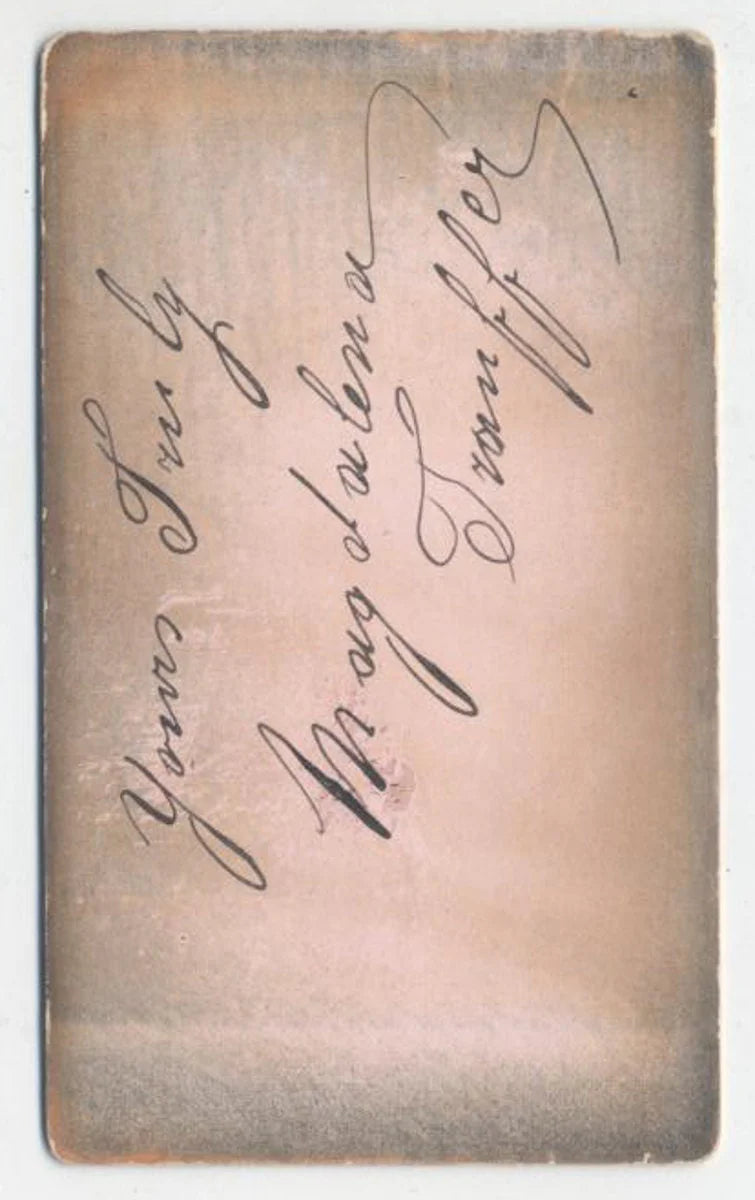 Yours Truly
Magdalena
Trauffer